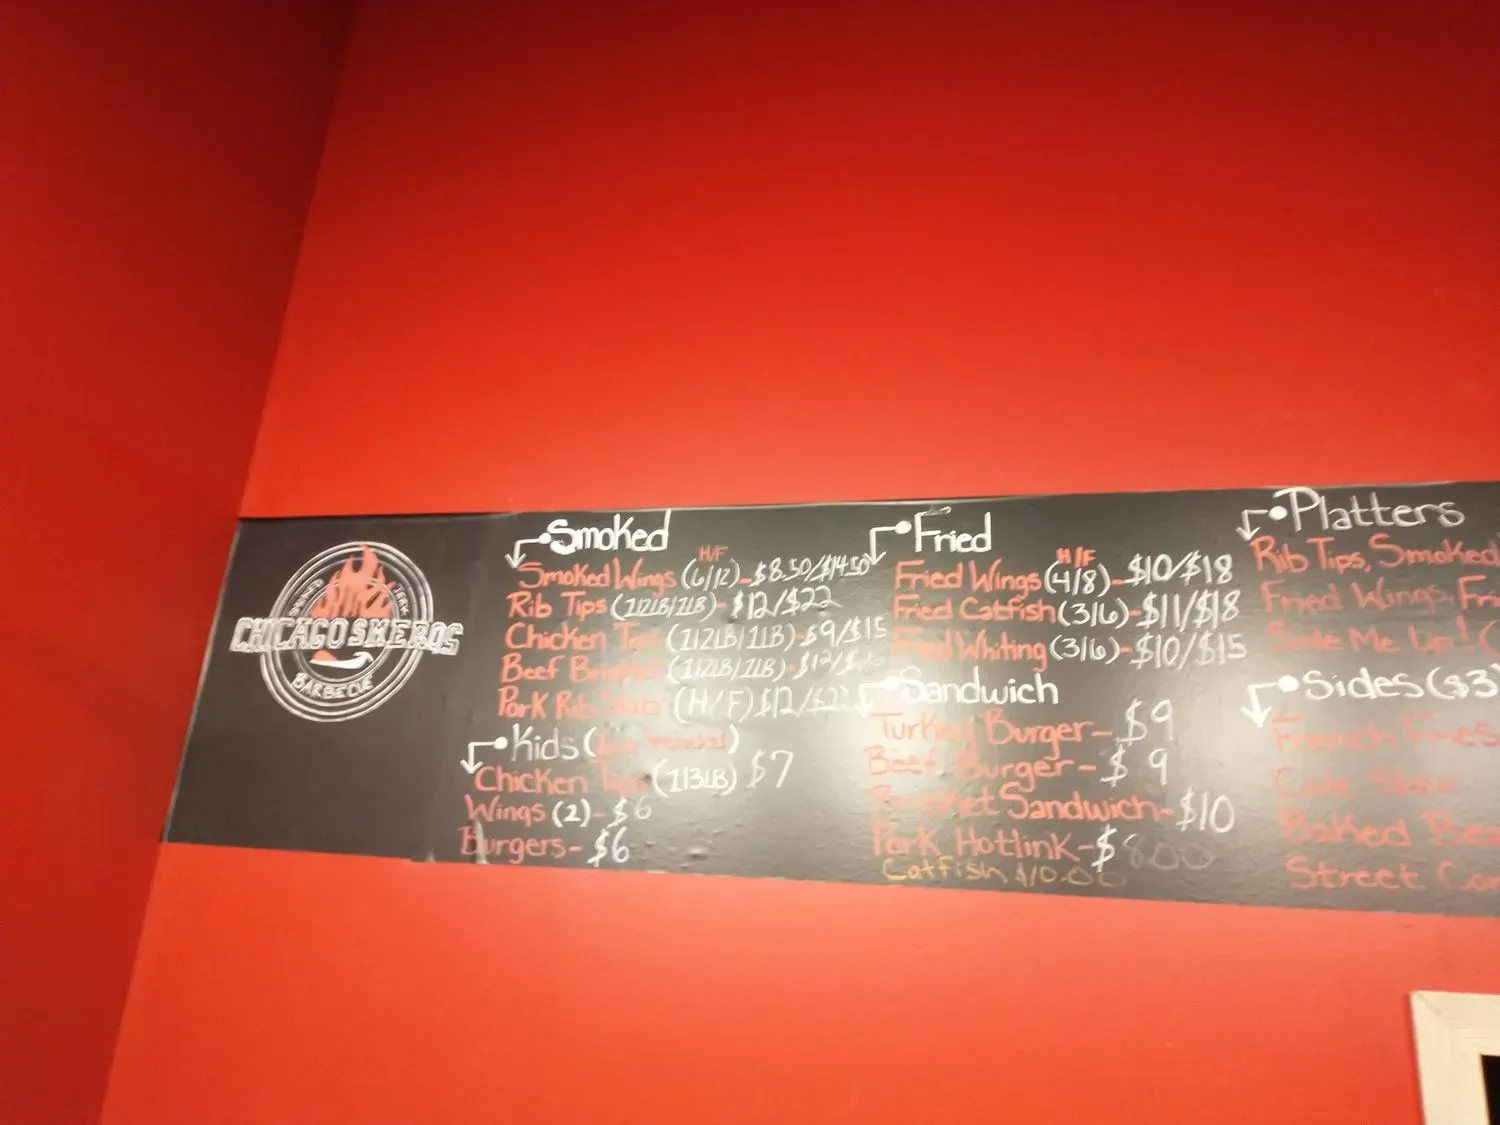 CHICAGO SMEROS
BARBECUE
JERK
Smoked
H/F
Smoked Wings (6/12) - $8.50/$14.50
Rib Tips (1/2LB/1LB) - $12/$22
Chicken (1/2LB/1LB) - $9/$15
Beef (1/2LB/1LB) - $12/
Pork Rib (H/F) $12/$22
Kids (
Chicken (1/3LB) $7
Wings (2) - $6
Burgers - $6
Fried
H/F
Fried Wings (4/8) - $10/$18
Fried Catfish (3/6) - $11/$18
Fried Whiting (3/6) - $10/$15
Sandwich
Turkey Burger - $9
Beef Burger - $9
Brisket Sandwich - $10
Pork Hotlink - $8.00
Catfish $10.00
Platters
Rib Tips, Smoked
Fried Wings, Fri
Me Up! (
Sides ($3)
French Fries
Cole Slaw
Baked Bea
Street Cor